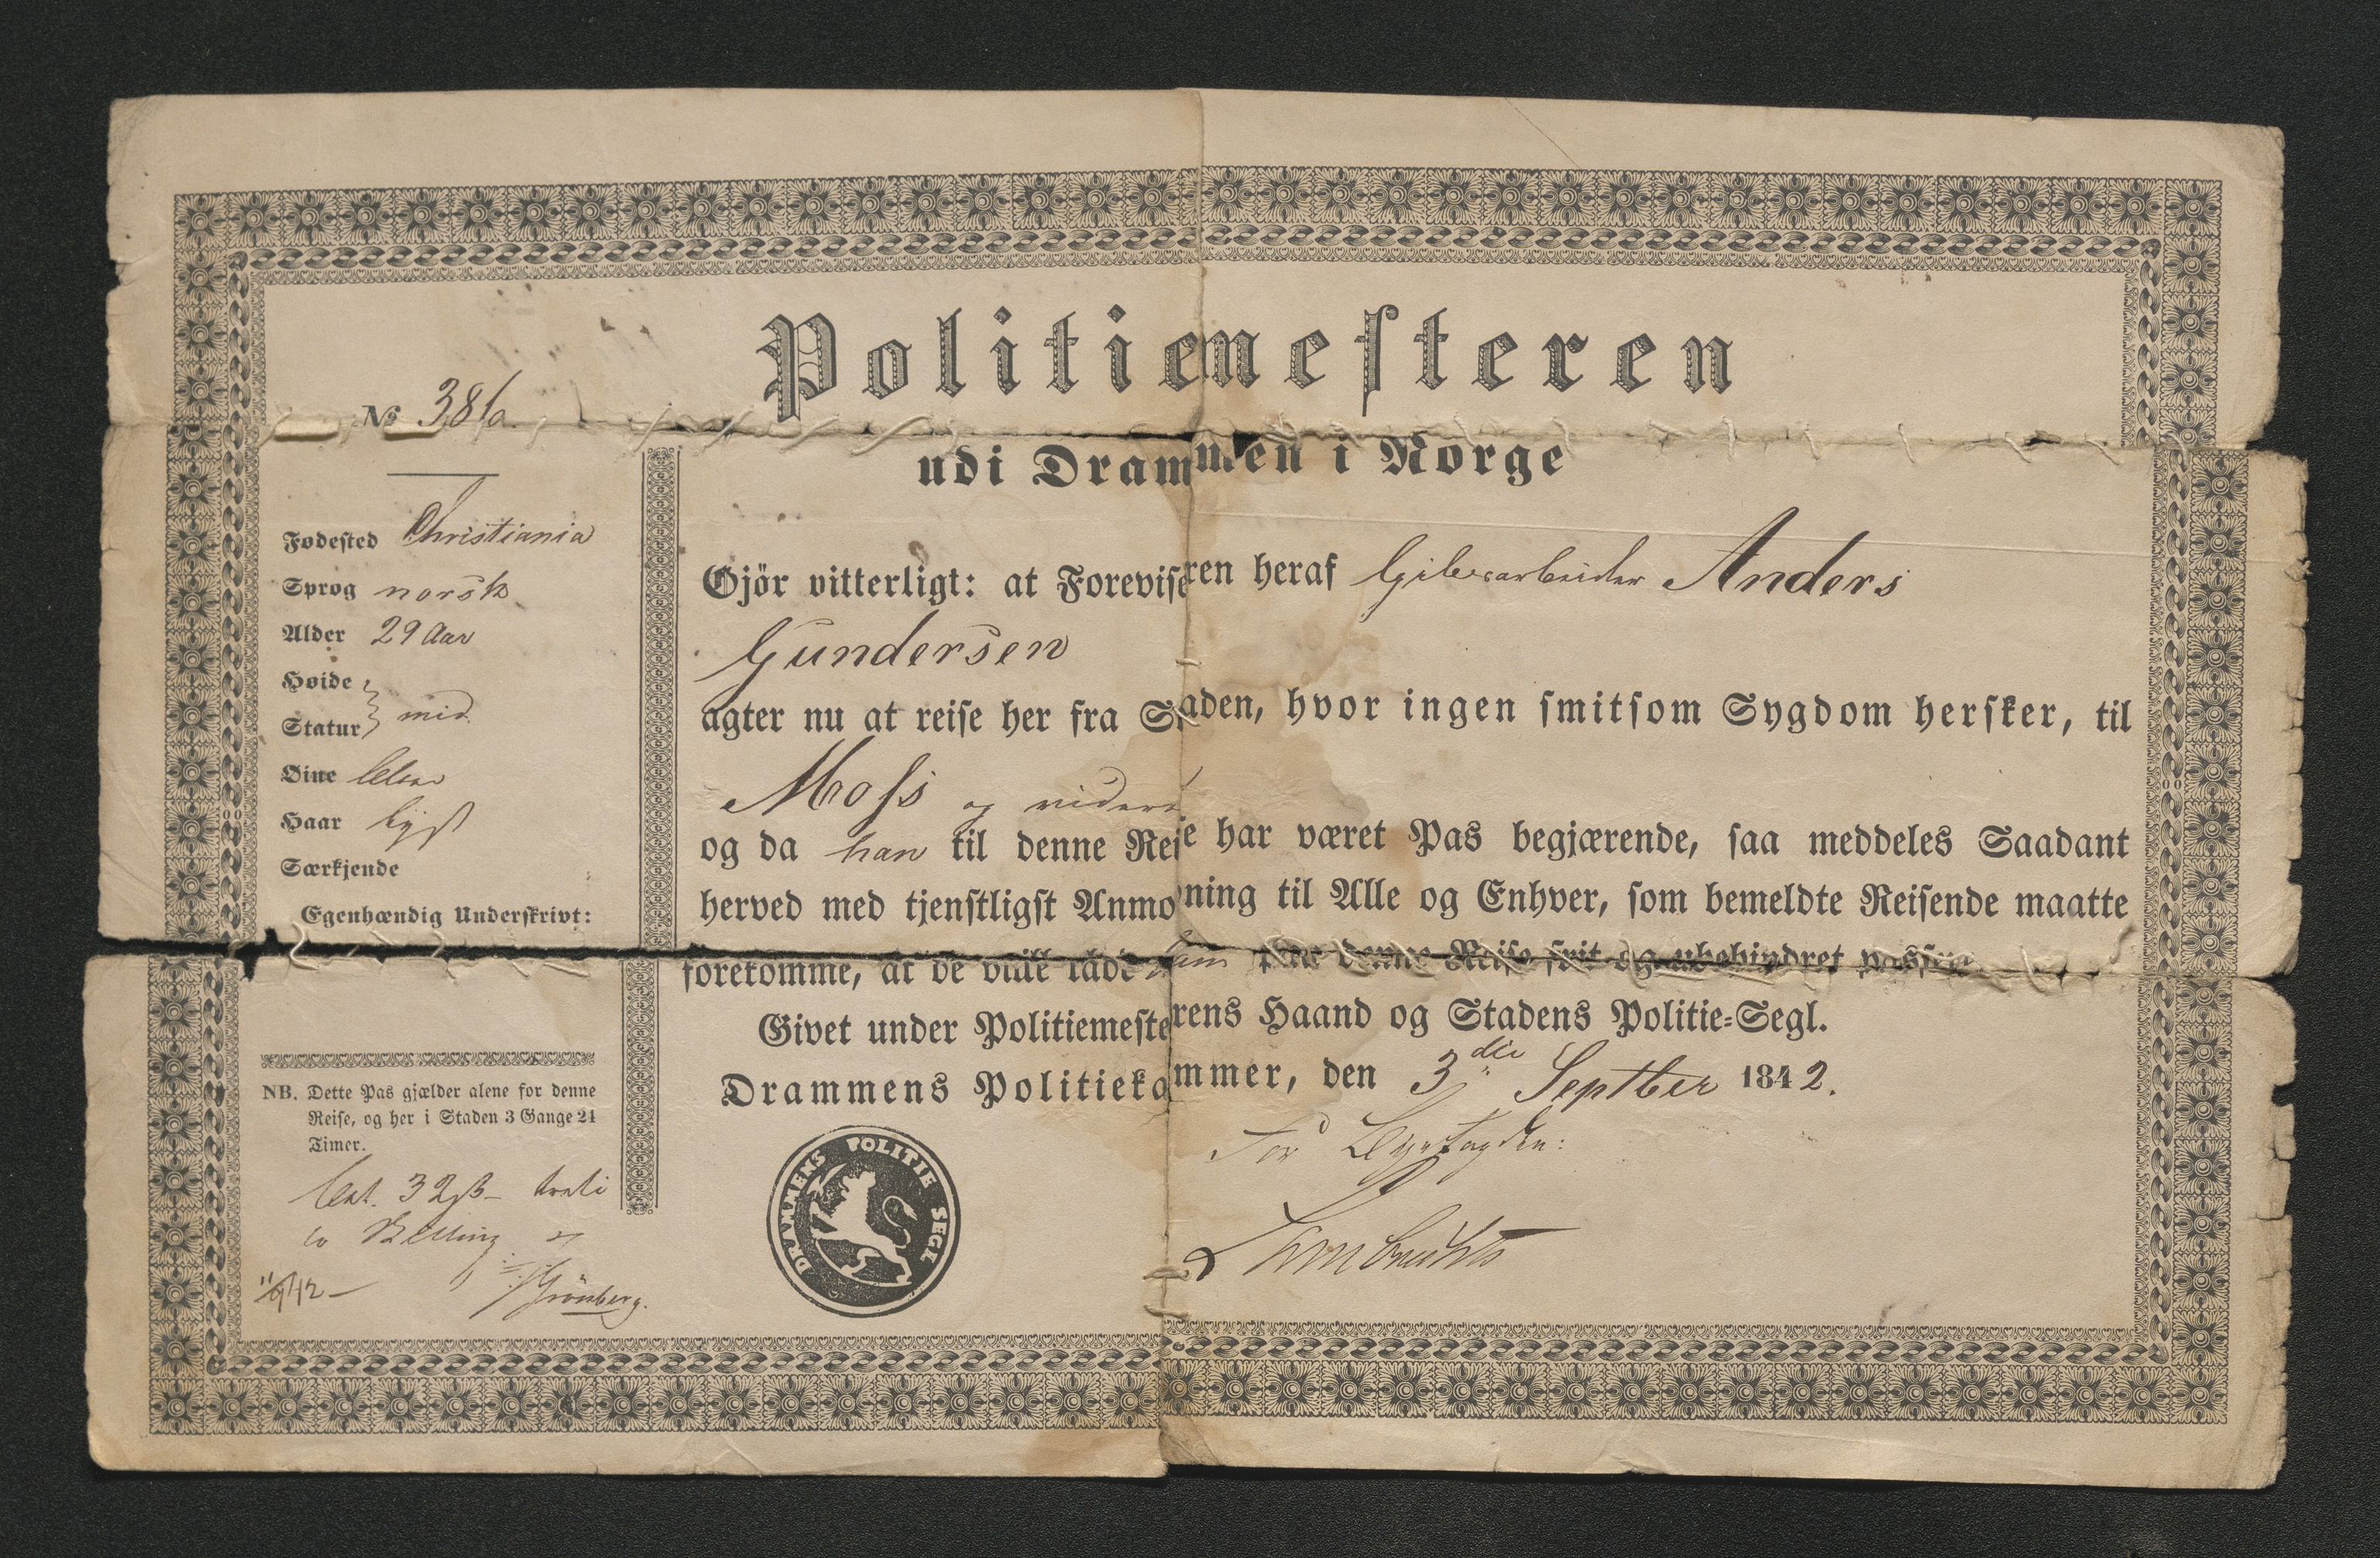 Politiemesteren
No 381a.
udi Drammen i Norge
Fødested Christiania
Sprog norsk
Alder 29 Aar
Høide
Statur mid.
Øine blaa
Haar lyst
Særkjende
Egenhændig Underskrivt:
NB. Dette Pas gjælder alene for denne
Reise, og her i Staden 3 Gange 24
Timer.
Bet. 32 ß
Grönberg.
Gjör vitterligt: at Foreviseren heraf Anders
Gundersen
agter nu at reise her fra Staden, hvor ingen smitsom Sygdom hersker, til
Moss og videre
og da han til denne Reise har været Pas begjærende, saa meddeles Saadant
herved med tjenstligst Anmodning til Alle og Enhver, som bemeldte Reisende maatte
forekomme, at de ville lade ham paa denne Reise frit og ubehindret passere
Givet under Politiemesterens Haand og Stadens Politie-Segl.
Drammens Politiekammer, den 3die Septber 1842.
DRAMMENS POLITIE SEGL